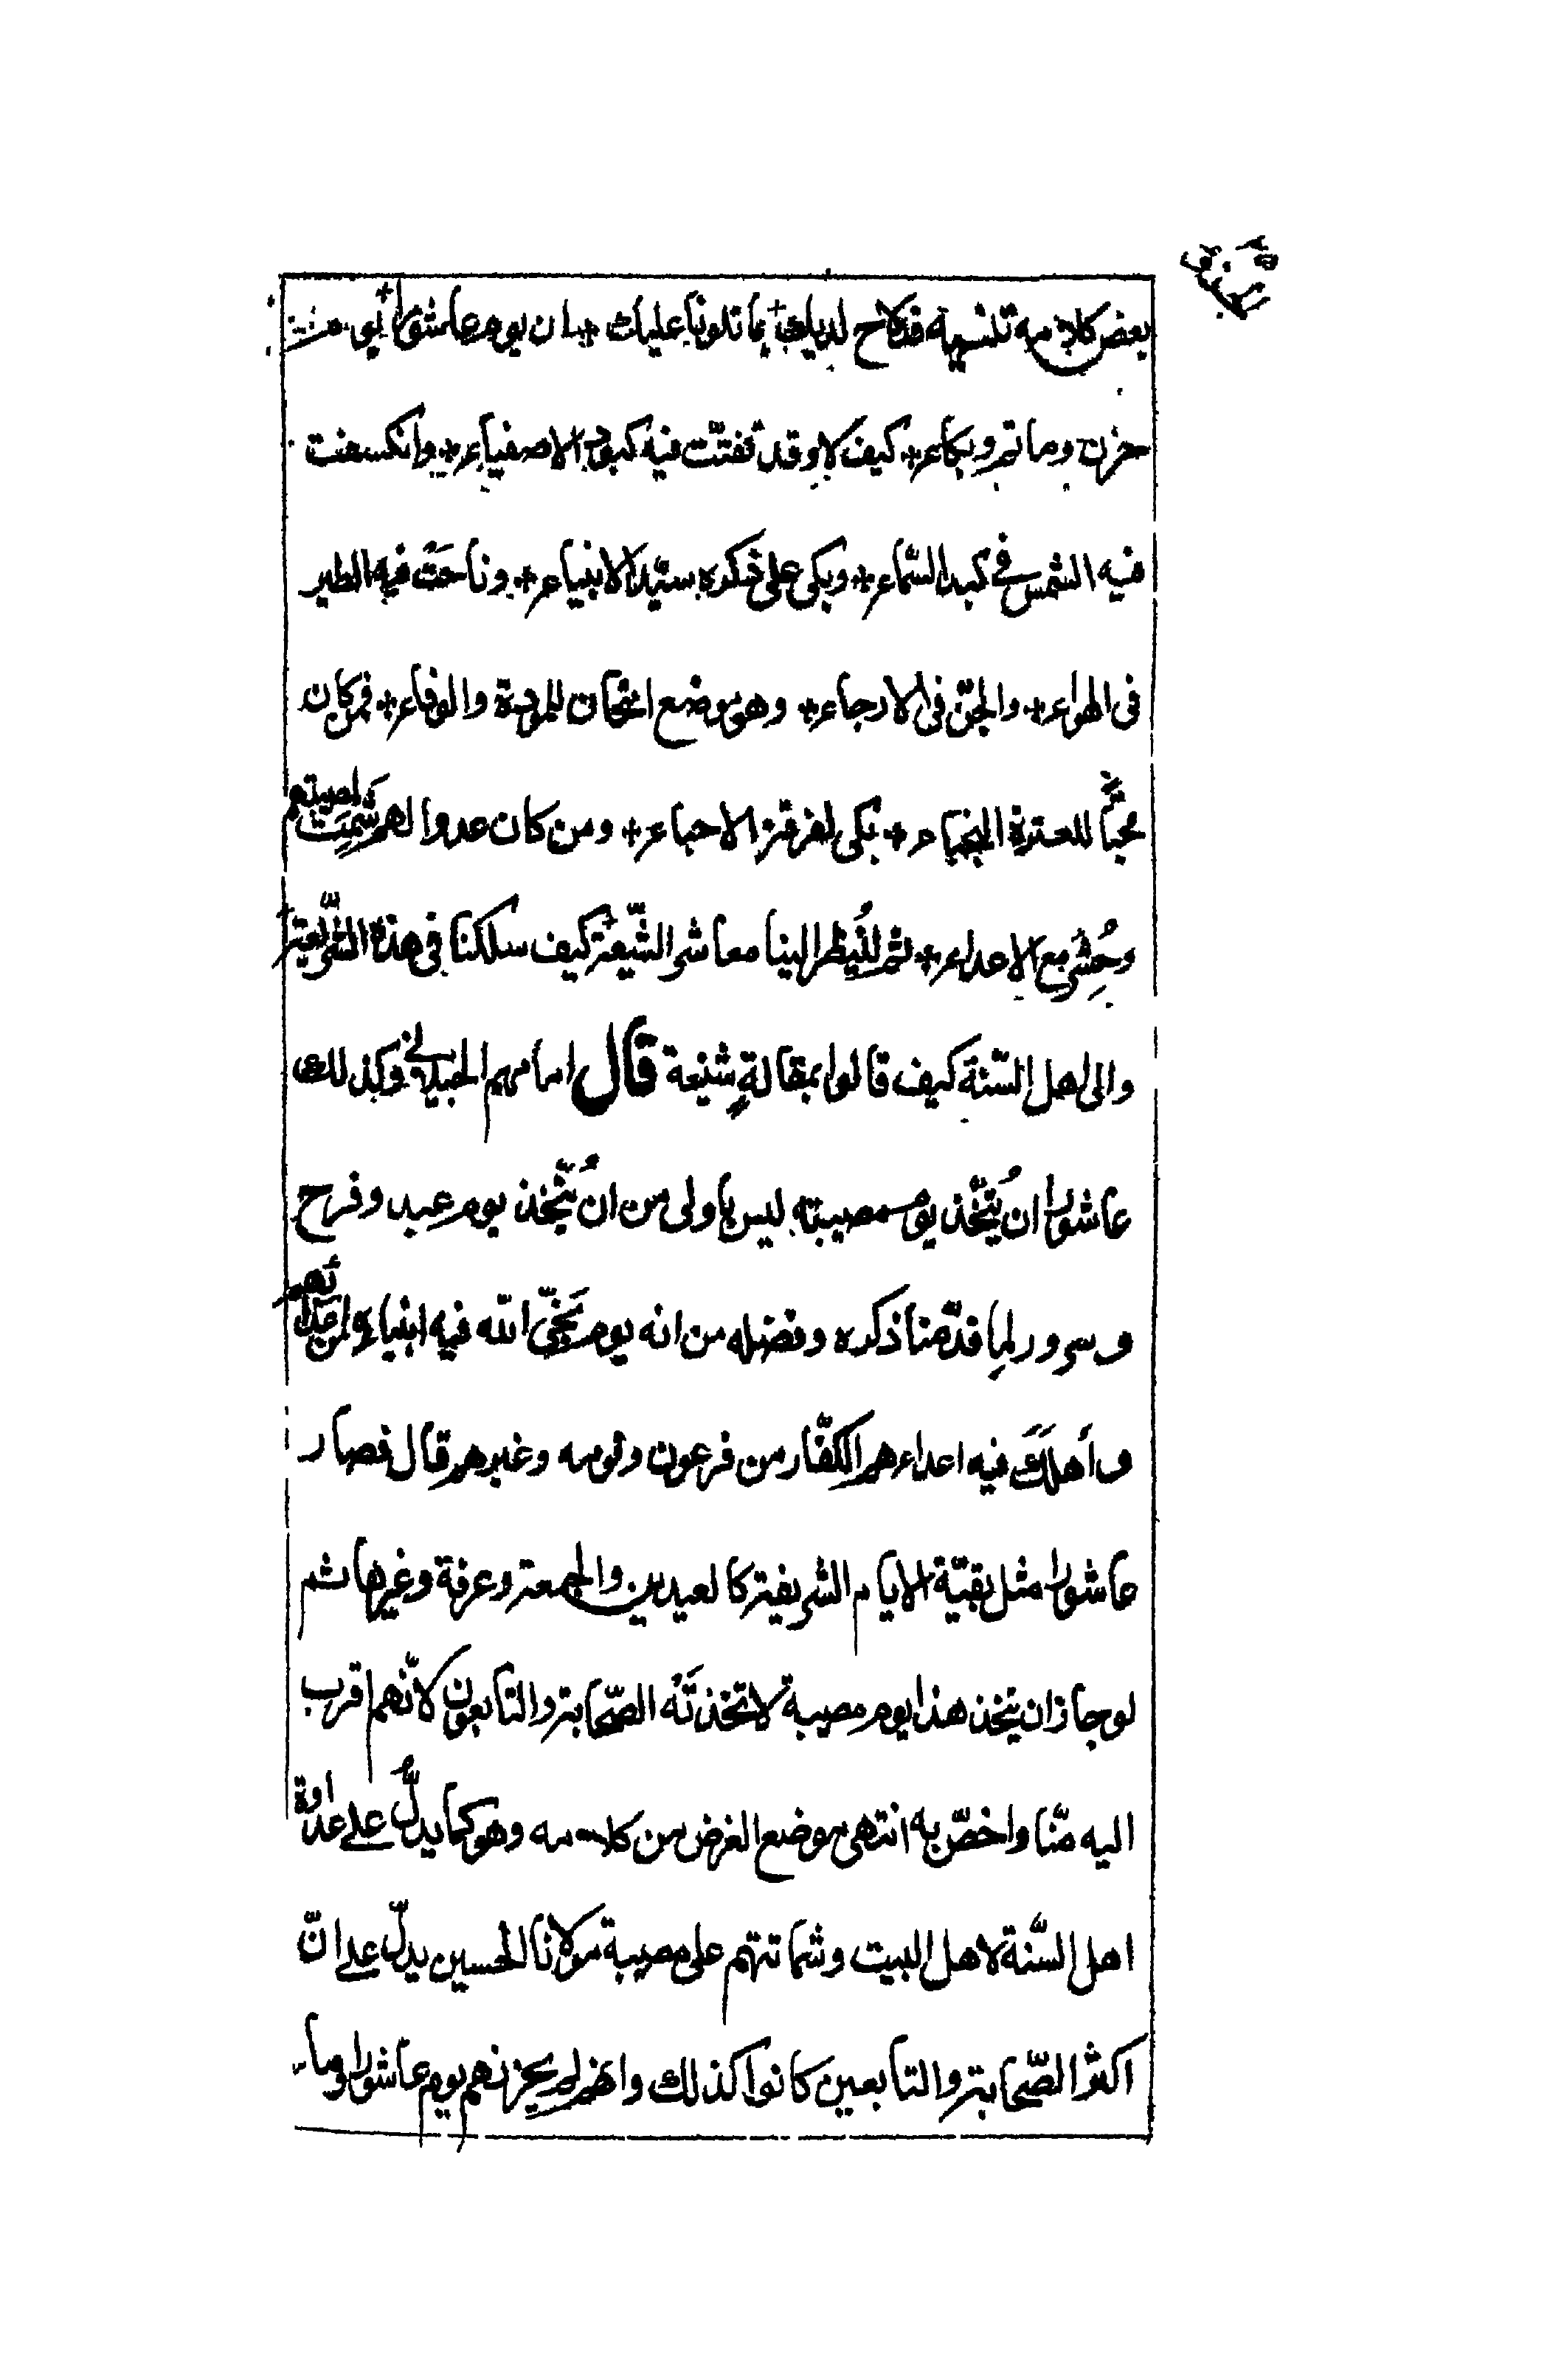 بعض كلامه تنبيه قد لاح لديك بما تلونا عليك ان يوم عاشورا يوم
حزن وماتم وبكاء كيف لا وقد تفتّت فيه كبود الاصفياء وانكسفت
فيه الشمس في كبد السّماء وبكى على ذكره سيّد الانبياء وناحَتْ فيه الطير
في الهواء والجنّ في الارجاء وهو موضع امتحان للمودة والوفاء فمن كان
محبّاً للعترة النجباء بكى لفرقة الاحباء ومن كان عدوا لهم شَمِتَ لمصيبتهم
وحُشِر مع الاعداء ثم لنُنظر الينا معاشر الشّيعة كيف سلكنا في هذه الشّريعة
والى اهل السّنة كيف قالوا بمقالةٍ شنيعة قال امامهم الجيلاني وكذلك
عاشورا انْ يُتّخذ يوم مصيبته ليس باولى من انْ يُتّخذ يوم عيد وفرح
وسرور لِما قدّمنا ذكره وفضله من انه يوم نَجّى الله فيه انبياءه من اعدائهم
وأهلَكَ فيه اعداءهم الكفّار من فرعون وقومه وغيرهم قال فصار
عاشورا مثل بقيّة الايام الشريفة كالعيدين والجمعة وعرفة وغيرها ثم
لو جاز ان يتخذ هذا يوم مصيبة لاتخذتَه الصّحابة والتابعون لانّهم اقرب
اليه منّا واخصّ به انتهى موضع الغرض من كلامه وهو كما يدلُّ على عداوة
اهل السّنة لاهل البيت وشماتتهم على مصيبة مولانا الحسين يدلّ على انّ
اكثر الصّحابة والتابعين كانوا كذلك وانهم لم يحزنهم يوم عاشورا وما